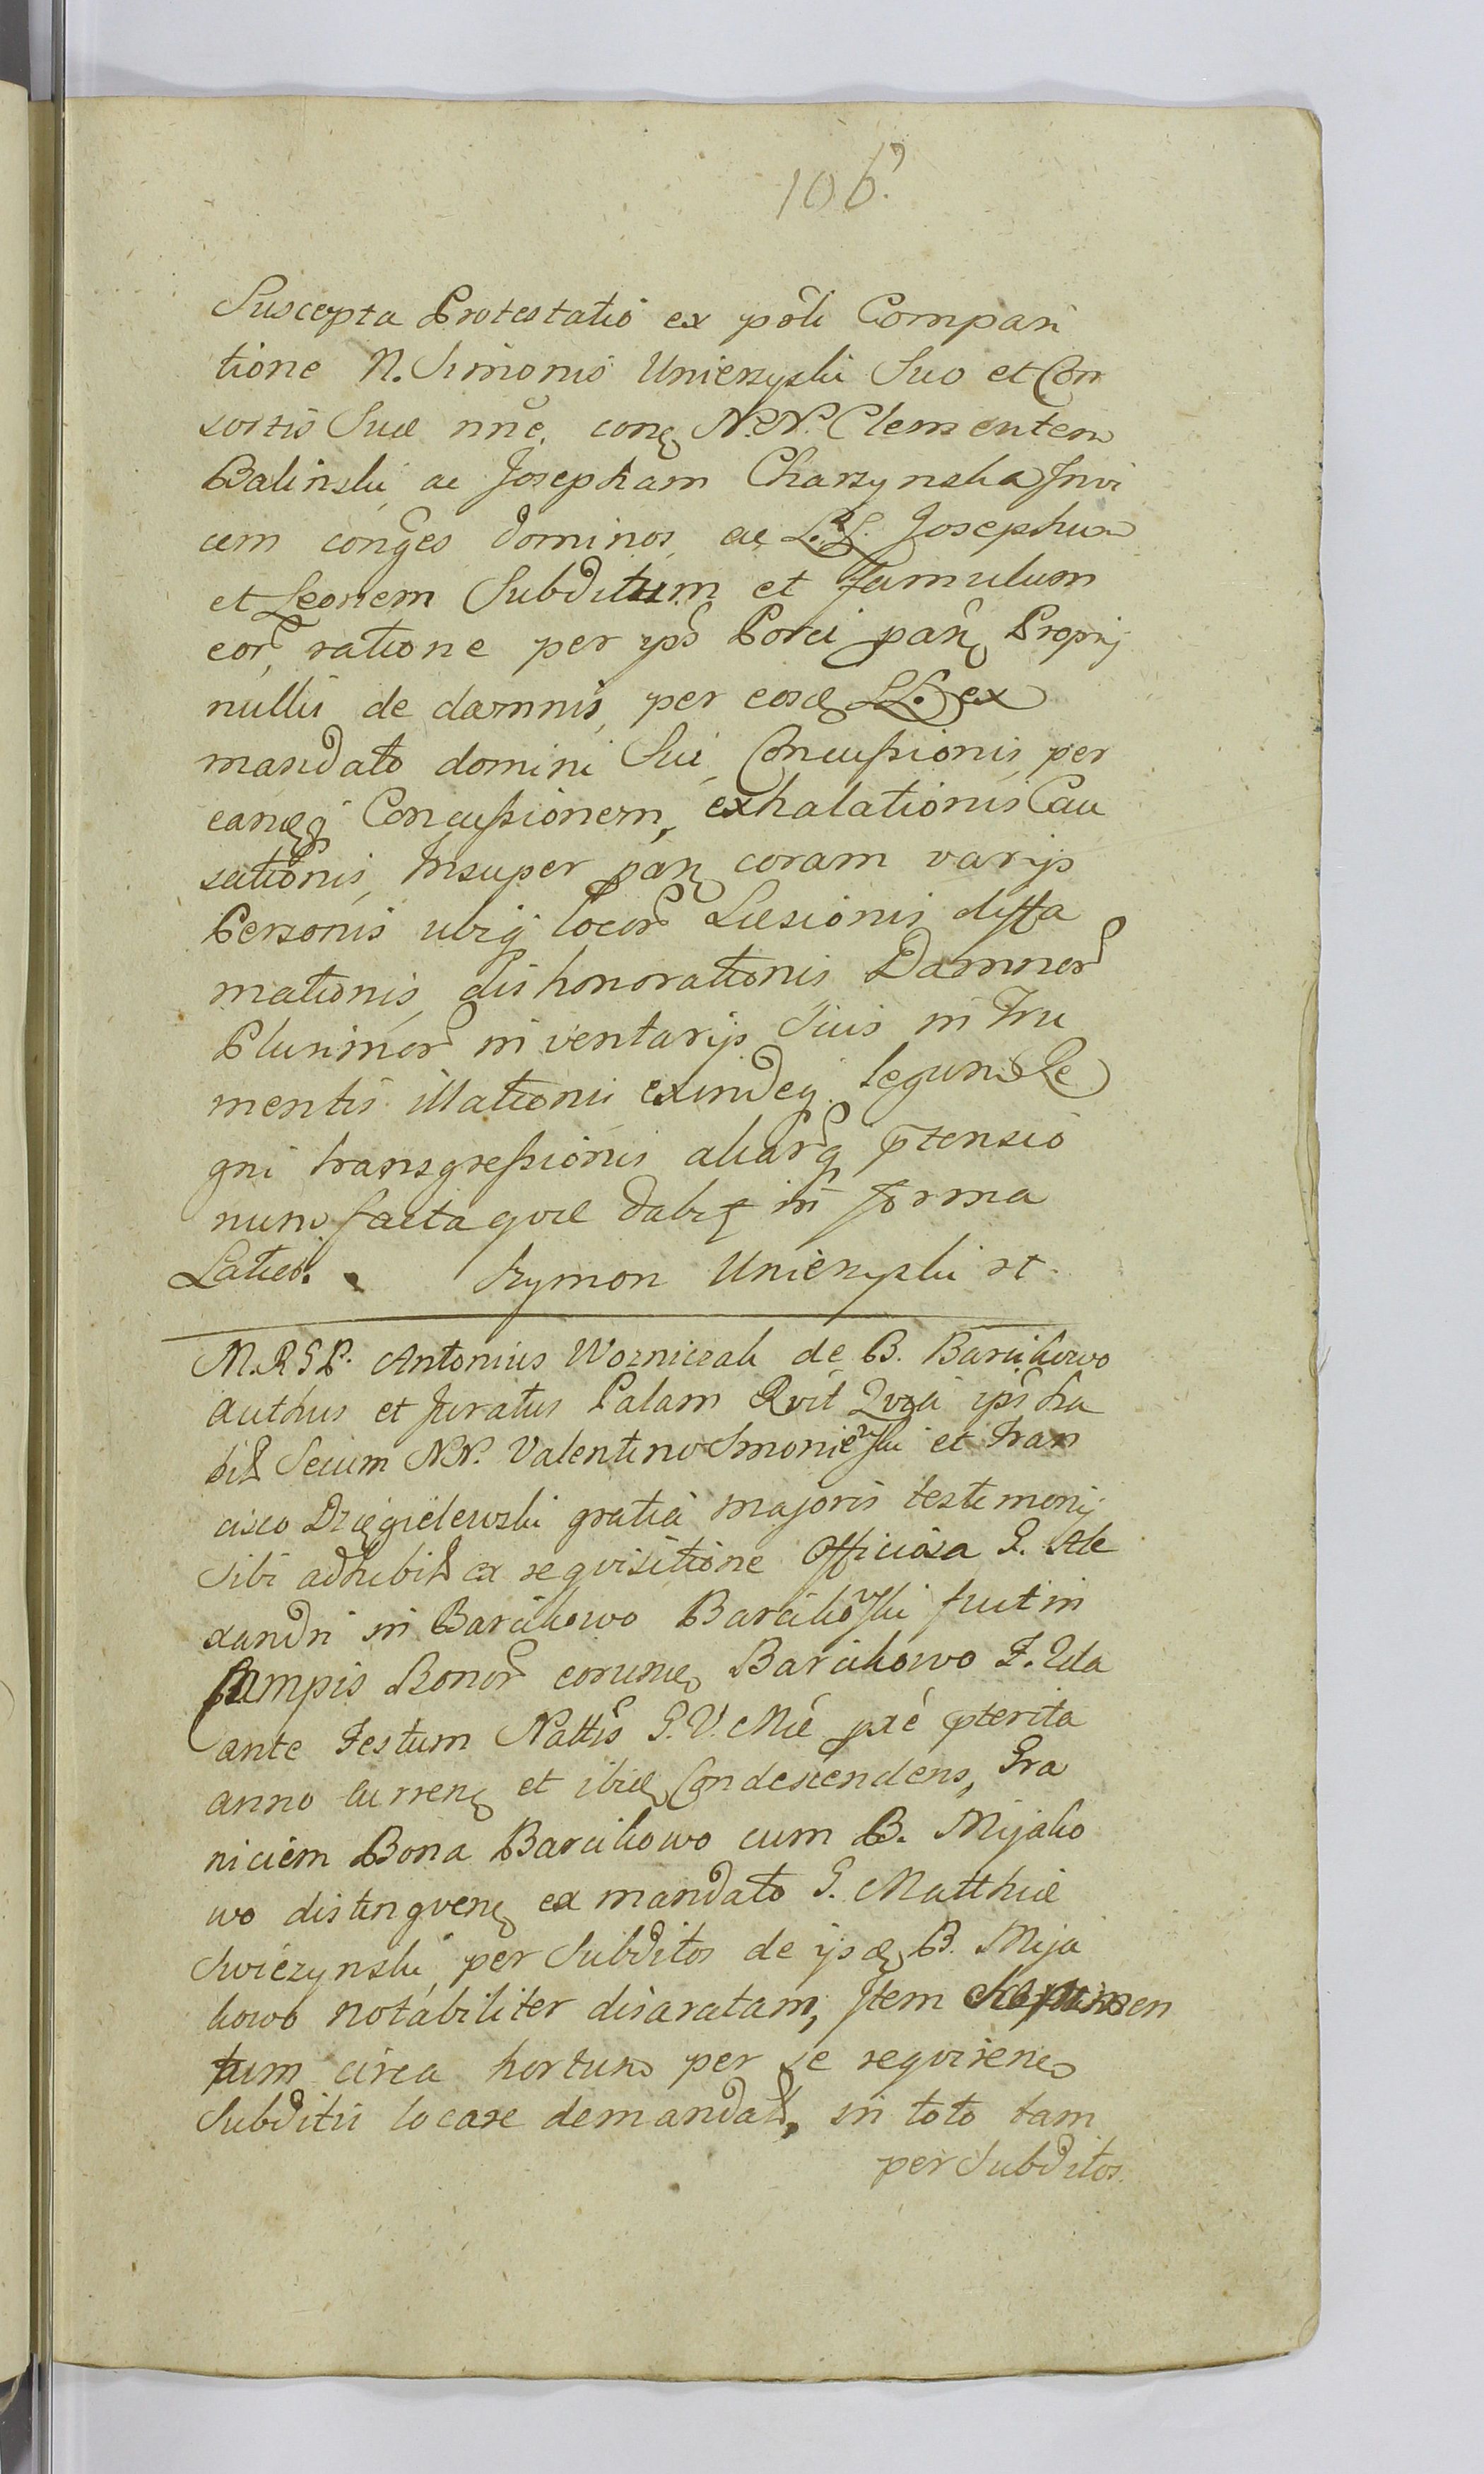 106.
Suscepta Protestatio ex põli Compari
tione N. Simonis Unierzyski Suo et Con
sortis Suæ nñe. conț N.N. Clementem
Balinski ac Josepham Charzynska Invi
cem conges dominos ac L.L. Josephum
et Leonem Subditum et famulum
eor ratione per ips Porci Proprij
nullis de damnis per LL. ex
mandato domini Sui Concussionis per
Concussionem, exhalationis Cau
sationis Insuper coram varijs
Personis ubiq locor Læsionis diffa
mationis dishonorationis Damnor
Plurimor in ventarijs Suis in Fru
mentis illationis exindeq. legum Re
gni transgressionis aliarq ptensio
num facta quæ dabit in forma
Latiori. Szymon Unierzyski st.
M.R.G.P. Antonius Wozniczak de B. Barcikowo
Authus et Juratus Palam Rvit Quia ips ha
bit Secum N.N. Valentino Smoniewski et Fran
cisco Dzięgielewski gratia majoris testimonij
Sibi adhibit ex reqvisitione Officiosa G. Ale
xandri in Barcikowo Barcikowski fuit in
Campis Bonor Barcikowo F. 2da
ante Festum Nattis B.V. Mæ pxe pterita
anno curren et Condescendens, Gra
niciem Bona Barcikowo cum B. Mijako
wo distingven ex mandato G. Matthiæ
Swiezynski per Subditos de B. Mija
kowo notabiliter disaratam, Item
tum circa hortum per se reqviren
Subditis locare demandat, in toto tam
per Subditos.